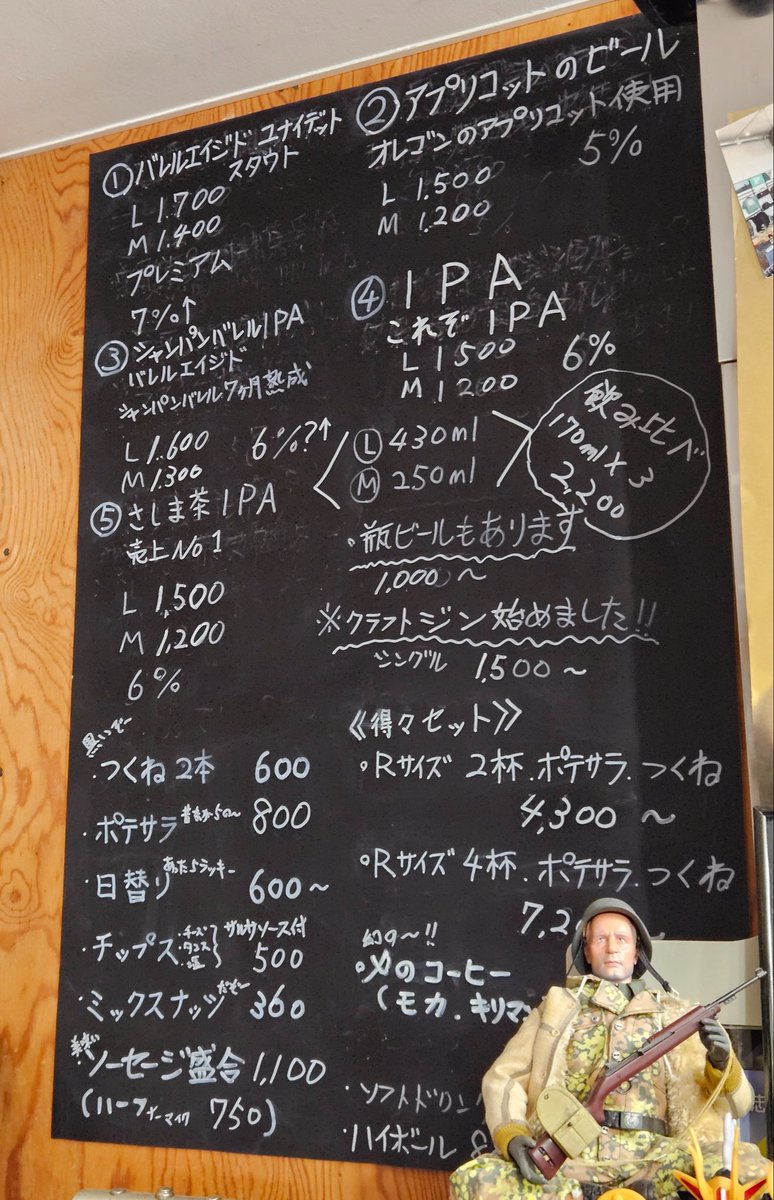 ① バレルエイジド ユナイデット
スタウト
L 1.700
M 1.400
プレミアム
7%↑
② アプリコットのビール
オレゴンのアプリコット使用
5%
L 1.500
M 1.200
③ シャンパンバレルIPA
バレルエイジド
シャンパンバレル7ヶ月熟成
L 1.600
M 1.300
6%?↑
④ IPA
これぞIPA
L 1500
M 1200
6%
Ⓛ 430ml
Ⓜ 250ml
飲みくらべ
170ml×3
2,200
⑤ さしま茶IPA
売上No1
L 1,500
M 1,200
6%
・瓶ビールもあります
1,000〜
※クラフトジン始めました!!
シングル 1,500〜
・つくね2本 600
・ポテサラ 800
・日替り あったらラッキー 600〜
・チップス チーズ 塩 サルサソース付 500
・ミックスナッツ 360
ソーセージ盛合 1,100
(ハーフ 750)
《得々セット》
・Rサイズ 2杯.ポテサラ.つくね
4,300〜
・Rサイズ 4杯.ポテサラ.つくね
7,2
幻の〜!!
のコーヒー
(モカ.キリマン
・ソフトドリン
・ハイボール 8